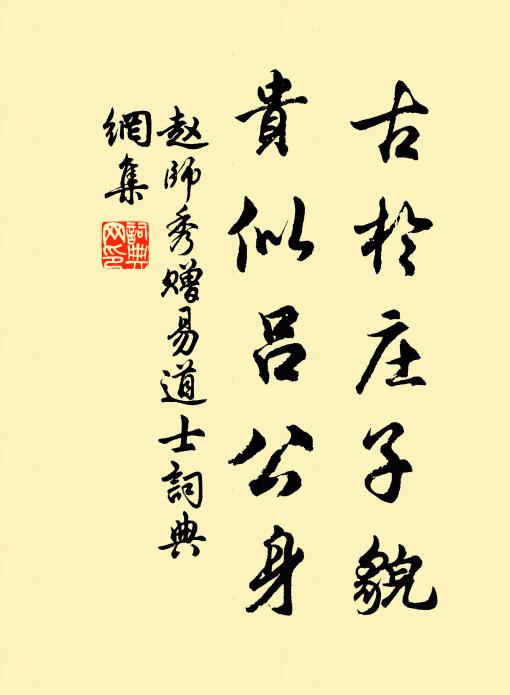 古於庄子貌
貴似吕公身
赵師秀赠易道士詞典
網集
詞典网印